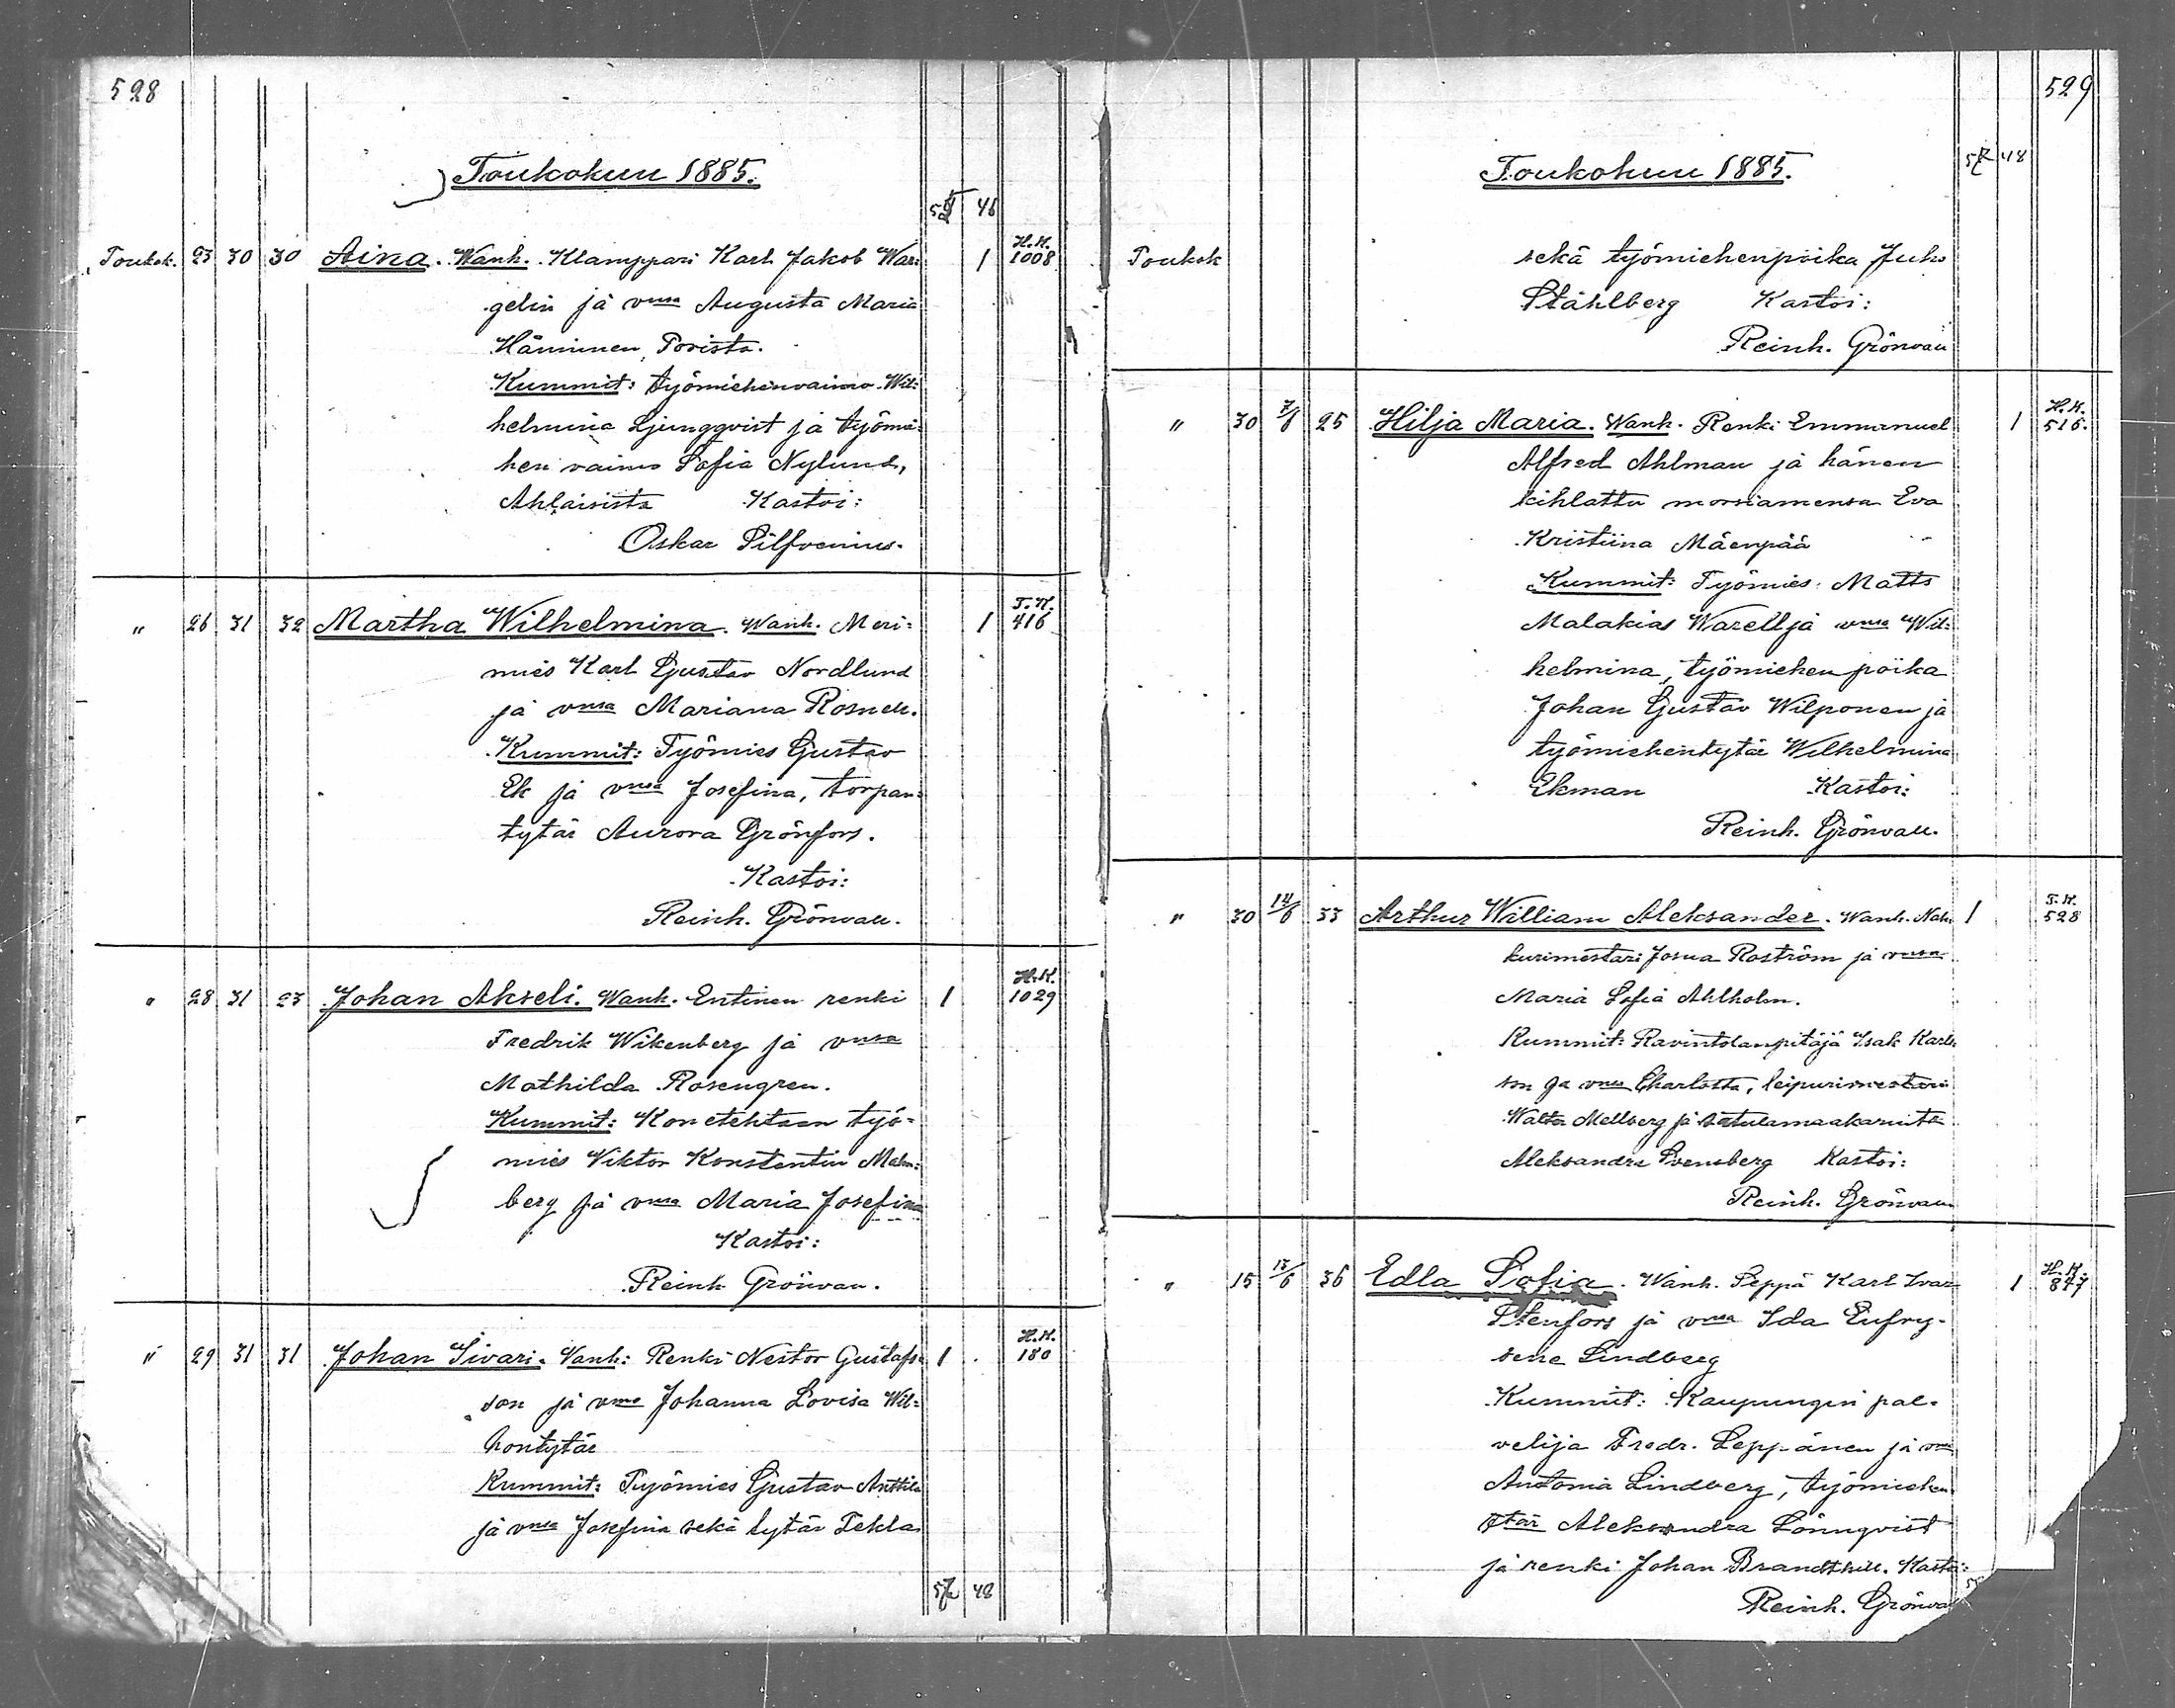 528
Toukokuu 1885.
46
Toukok. 23 30 30 Aina. Wanh. Klamppari Karl Jakob Wan= 1 H.K. 1008
gelin ja vmsa Augusta Maria
Hänninen, Porista.
Kummit: työmiehenvaimo Wil=
helmina Ljungqvist ja työmie=
hen vaimo Sofia Nylund,
Ahlaisista Kastoi:
Oskar Silfvenius.
" 26 31 32 Martha Wilhelmina. Wanh. Meri= 1 T.K. 416
mies Karl Gustav Nordlund
ja vmsa Mariana Rosnell.
Kummit: Työmies Gustav
Ek ja vmsa Josefina, torpan=
tytär Aurora Grönfors.
Kastoi:
Reinh. Grönvall.
" 28 31 23 Johan Akseli. Wanh. Entinen renki 1 H.K. 1029
Fredrik Wikenberg ja vmsa
Mathilda Rosengren.
Kummit: Konetehtaan työ=
mies Viktor Konstentin Malm=
berg ja vmsa Maria Josefina
Kastoi:
Reinh Grönvall.
" 29 31 31 Johan Sivari. Vanh: Renki Nestor Gustafs= 1 H.K. 180
son ja vmsa Johanna Lovisa Wil=
hontytär
Kummit: Työmies Gustav Anttila
ja vmsa Josefina sekä tytär Tekla
48
529
Toukokuu 1885.
48
Toukok sekä työmiehenpoika Juho
Ståhlberg Kastoi:
Reinh. Grönvall
" 30 7/6 25 Hilja Maria. Wanh. Renki Emmanuel 1 H.K. 516.
Alfred Ahlman ja hänen
kihlattu morsiamensa Eva
Kristiina Mäenpää
Kummit: Työmies Matts
Malakias Warell ja vmsa Wil=
helmina, työmiehen poika
Johan Gustav Wilponen ja
työmiehentytär Wilhelmina
Ekman Kastoi:
Reinh. Grönvall.
" 30 14/6 33 Arthur William Aleksander. Wanh. Nah= 1 T.K. 528
kurimestari Josua Roström ja vmsa
Maria Sofia Ahlholm.
Kummit: Ravintolanpitäjä Isak Karls
son ja vmsa Charlotta, leipurimestari
Walter Mellberg ja satulamaakarinta
Aleksandra Svensberg Kastoi:
Reinh. Grönvall
" 15 15/6 36 Edla Sofia. Wanh. Seppä Karl Ivar 1 H.K. 847
Stenfors ja vmsa Ida Eufry-
sene Lindberg
Kummit: Kaupungin pal-
velija Fredr. Leppänen ja vmsa
Antonia Lindberg, työmiehen
tär Aleksandra Lönnqvist
ja renki Johan Brandthill. Kastoi:
Reinh. Grönva